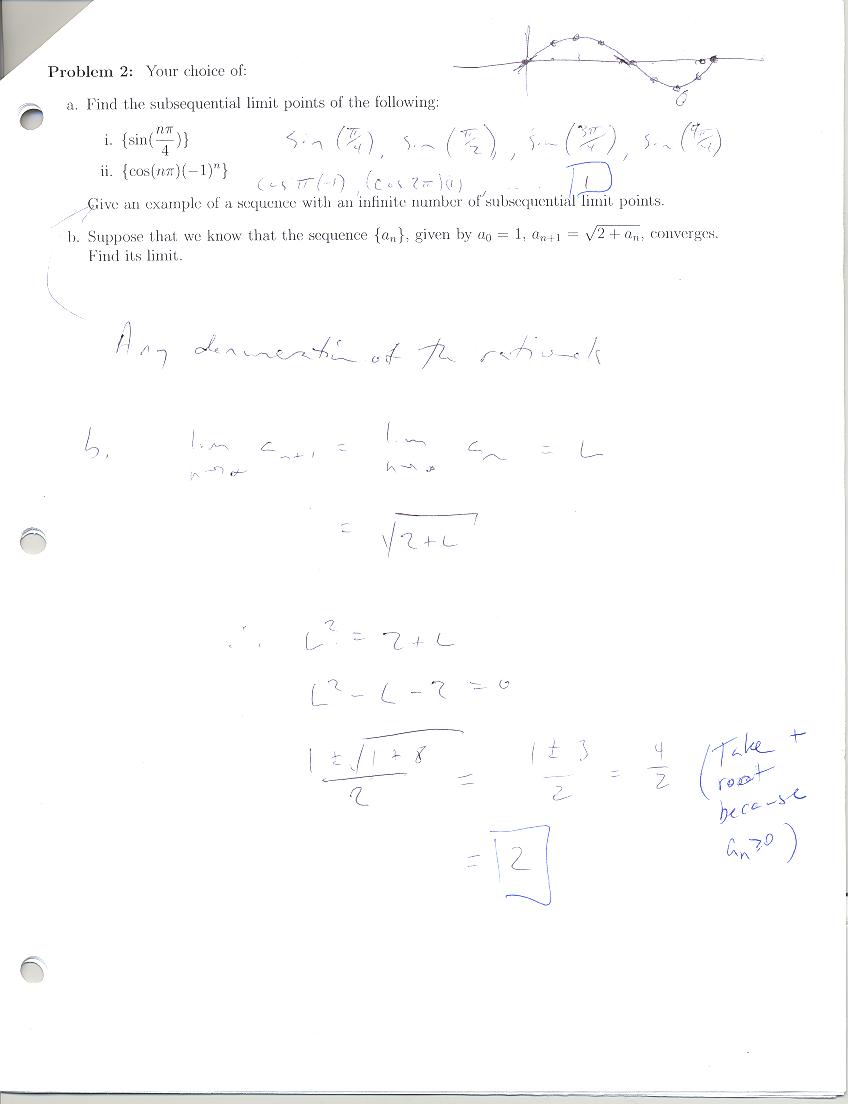 Problem 2: Your choice of:
a. Find the subsequential limit points of the following:
i. {sin(nπ/4)} sin (π/4), sin (π/2), sin (3π/4), sin (4π/4)
ii. {cos(nπ)(-1)ⁿ} cos π(-1), (cos 2π)(1) , ..... 1
Give an example of a sequence with an infinite number of subsequential limit points.
b. Suppose that we know that the sequence {aₙ}, given by a₀ = 1, aₙ₊₁ = √(2 + aₙ), converges.
Find its limit.
Any denumeration of the rationals
b. lim n→∞ aₙ₊₁ = lim n→∞ aₙ = L
= √(2+L)
∴ L² = 2+L
L² - L - 2 = 0
(1 ± √(1+8))/2 = (1 ± 3)/2 = 4/2 (Take +
root
because
aₙ≥0)
= 2